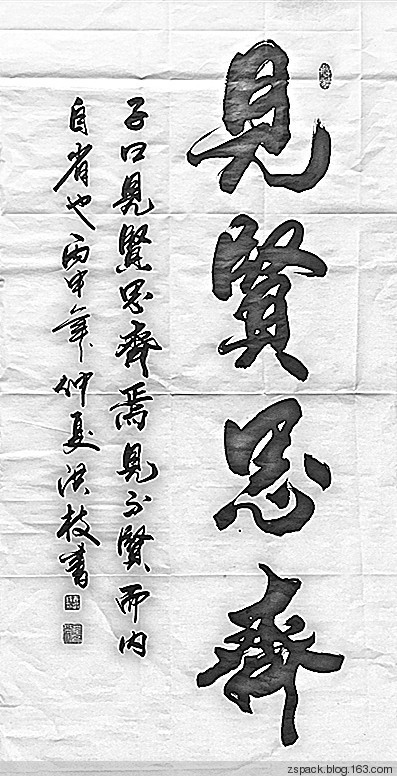 見賢思齊
子曰見賢思齊焉見不賢而内
自省也丙申年仲夏洪枝書
zspack.blog.163.com